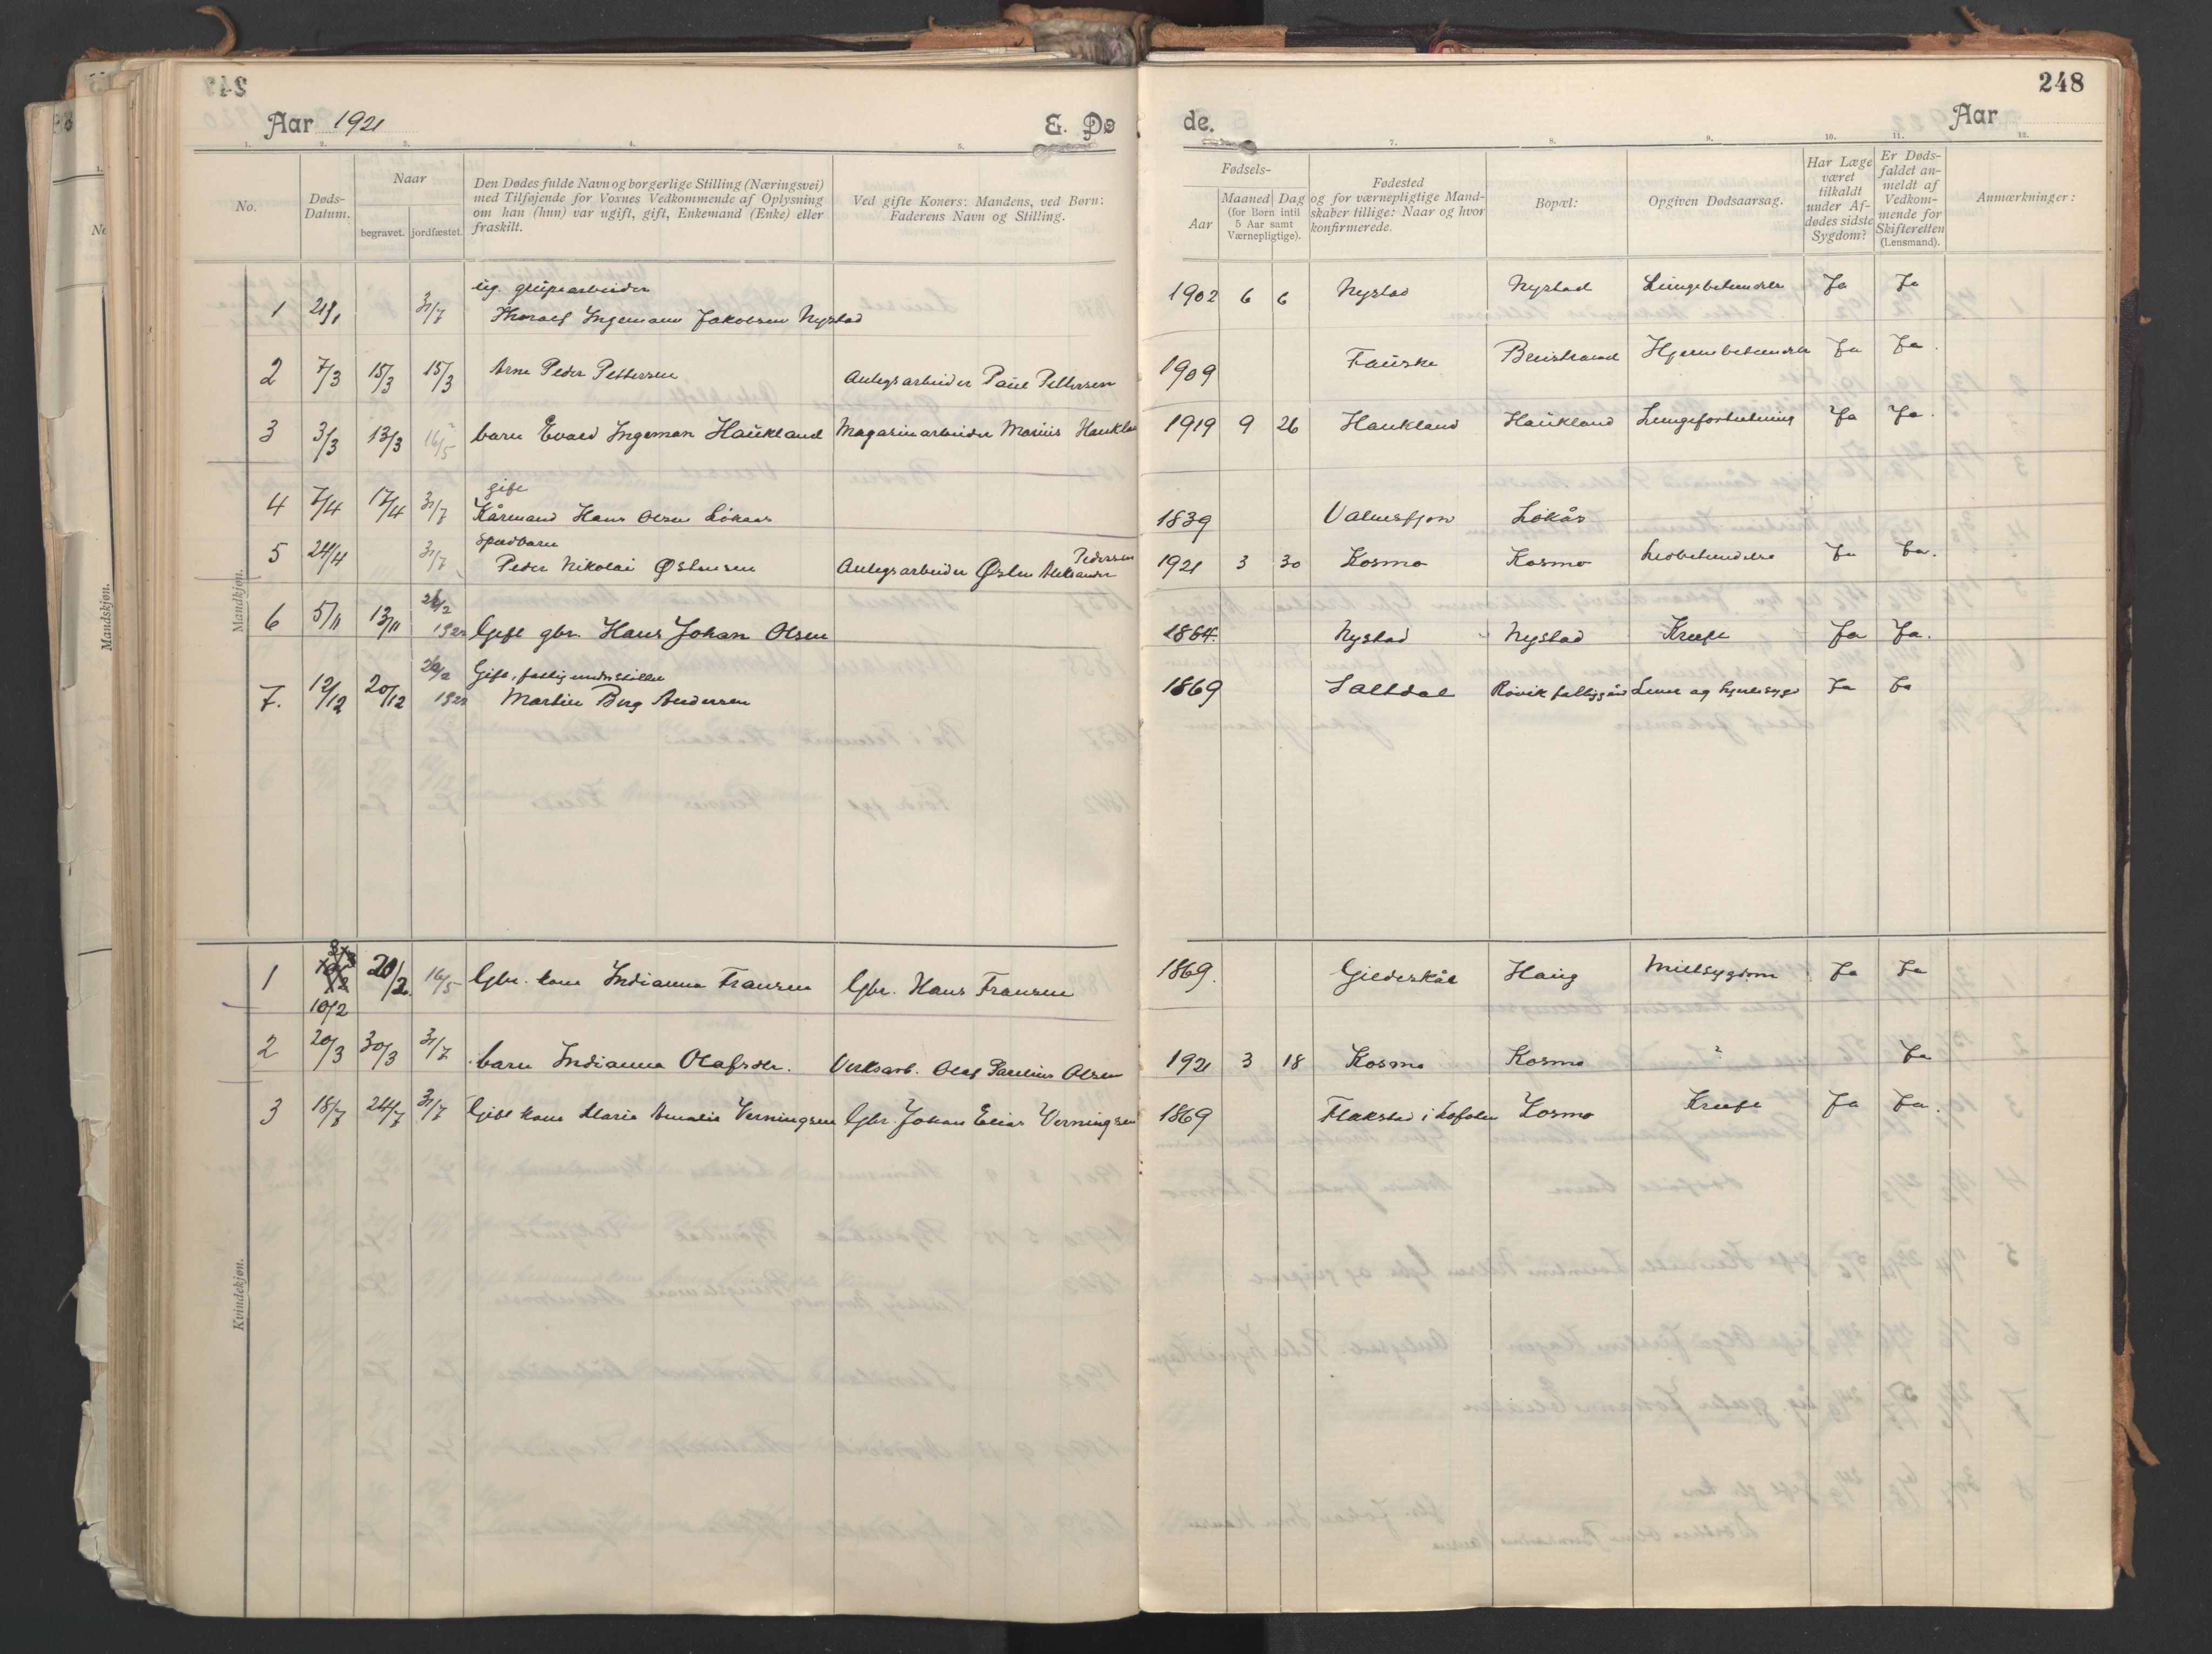 248
Aar 1921 E. Dø de. Aar
1. 2. 3. 4. 5. 7. 8. 9. 10. 11. 12.
No.
Døds-Datum.
Naar
begravet. jordfæstet.
Den Dødes fulde Navn og borgerlige Stilling (Næringsvei)
med Tilføjende for Voxnes Vedkommende af Oplysning
om han (hun) var ugift, gift, Enkemand (Enke) eller
fraskilt.
Ved gifte Koners: Mandens, ved Børn:
Faderens Navn og Stilling.
Fødsels-
Aar
Maaned Dag
(for Børn intil
5 Aar samt
Værnepligtige).
Fødested
og for værnepligtige Mand-
skaber tillige: Naar og hvor
konfirmerede.
Bopæl:
Opgiven Dødsaarsag.
Har Læge
været
tilkaldt
under Af-
dødes sidste
Sygdom?
Er Døds-
faldet an-
meldt af
Vedkom-
mende for
Skifteretten
(Lensmand).
Anmærkninger:
Mandkjøn.
ug. grubearbeider
1 31/7 Thoralf Ingemann Jakobsen Nystad 1902 6 6 Nystad Nystad Lungebetændelse Ja Ja
2 7/3 15/3 15/3 Arne Peder Pettersen Anlegsarbeider Paul Pettersen 1909 Fauske Hjernebetændelse Ja Ja.
3 3/3 13/3 16/5 barn Evald Ingeman Haukland Magasinarbeider Marius Haukland 1919 9 26 Haukland Haukland Ja Ja.
gift
4 7/4 17/4 31/7 Kårmand Hans Olsen Løkaas 1839 Valnesfjor Løkås
spædbarn
5 24/4 31/7 Peder Nikolai Østensen Anlegsarbeider Østen Aleksander Pedersen 1921 3 30 Kosmo Kosmo Ja Ja.
6 5/11 13/11 26/2 1922 Gift gbr. Hans Johan Olsen 1864. Nystad Nystad Kræft Ja Ja.
Gift, fattigunderstøttet
7. 12/12 20/12 26/2 1922 Martin Berg Andersen 1869 Saltdal Røvik fattiggård Lever og hjertesyge Ja Ja
Kvindekjøn.
1 10/2 20/2. 16/5 Gbr. kone Indianna Fransen Gbr. Hans Fransen 1869. Gildeskål Haug Miltsygdom Ja Ja
2 20/3 30/3 31/7 barn Indianna Olafsdtr. Verksarb. Olaf Paulius Olsen 1921 3 18 Kosmo Kosmo ? Ja
3 18/7 24/7 31/7 Gift kone Maria Amalie Verningsen Gbr. Johan Elias Verningsen 1869 Flakstad i Lofoten Kosmo Kræft Ja Ja.
Mandskjøn.